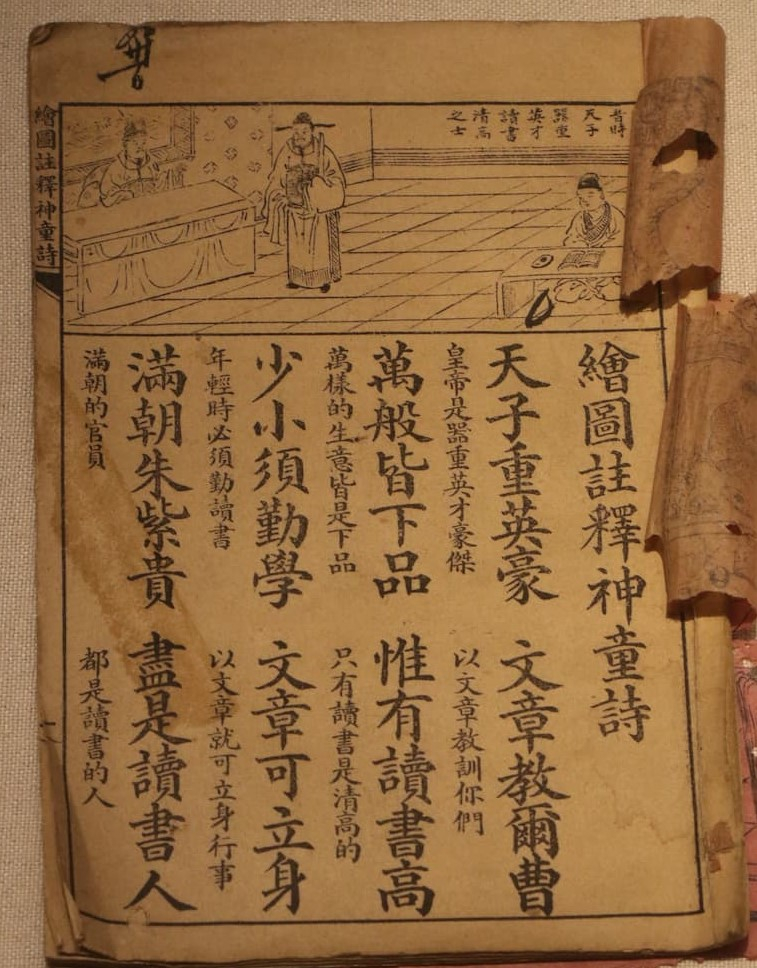 繪圖註釋神童詩
昔時
天子
器重
英才
讀書
清高
之士
繪圖註釋神童詩
天子重英豪 文章教爾曹
皇帝是器重英才豪傑 以文章教訓你們
萬般皆下品 惟有讀書高
萬樣的生意皆是下品 只有讀書是清高的
少小須勤學 文章可立身
年輕時必須勤讀書 以文章就可立身行事
滿朝朱紫貴 盡是讀書人
滿朝的官員 都是讀書的人